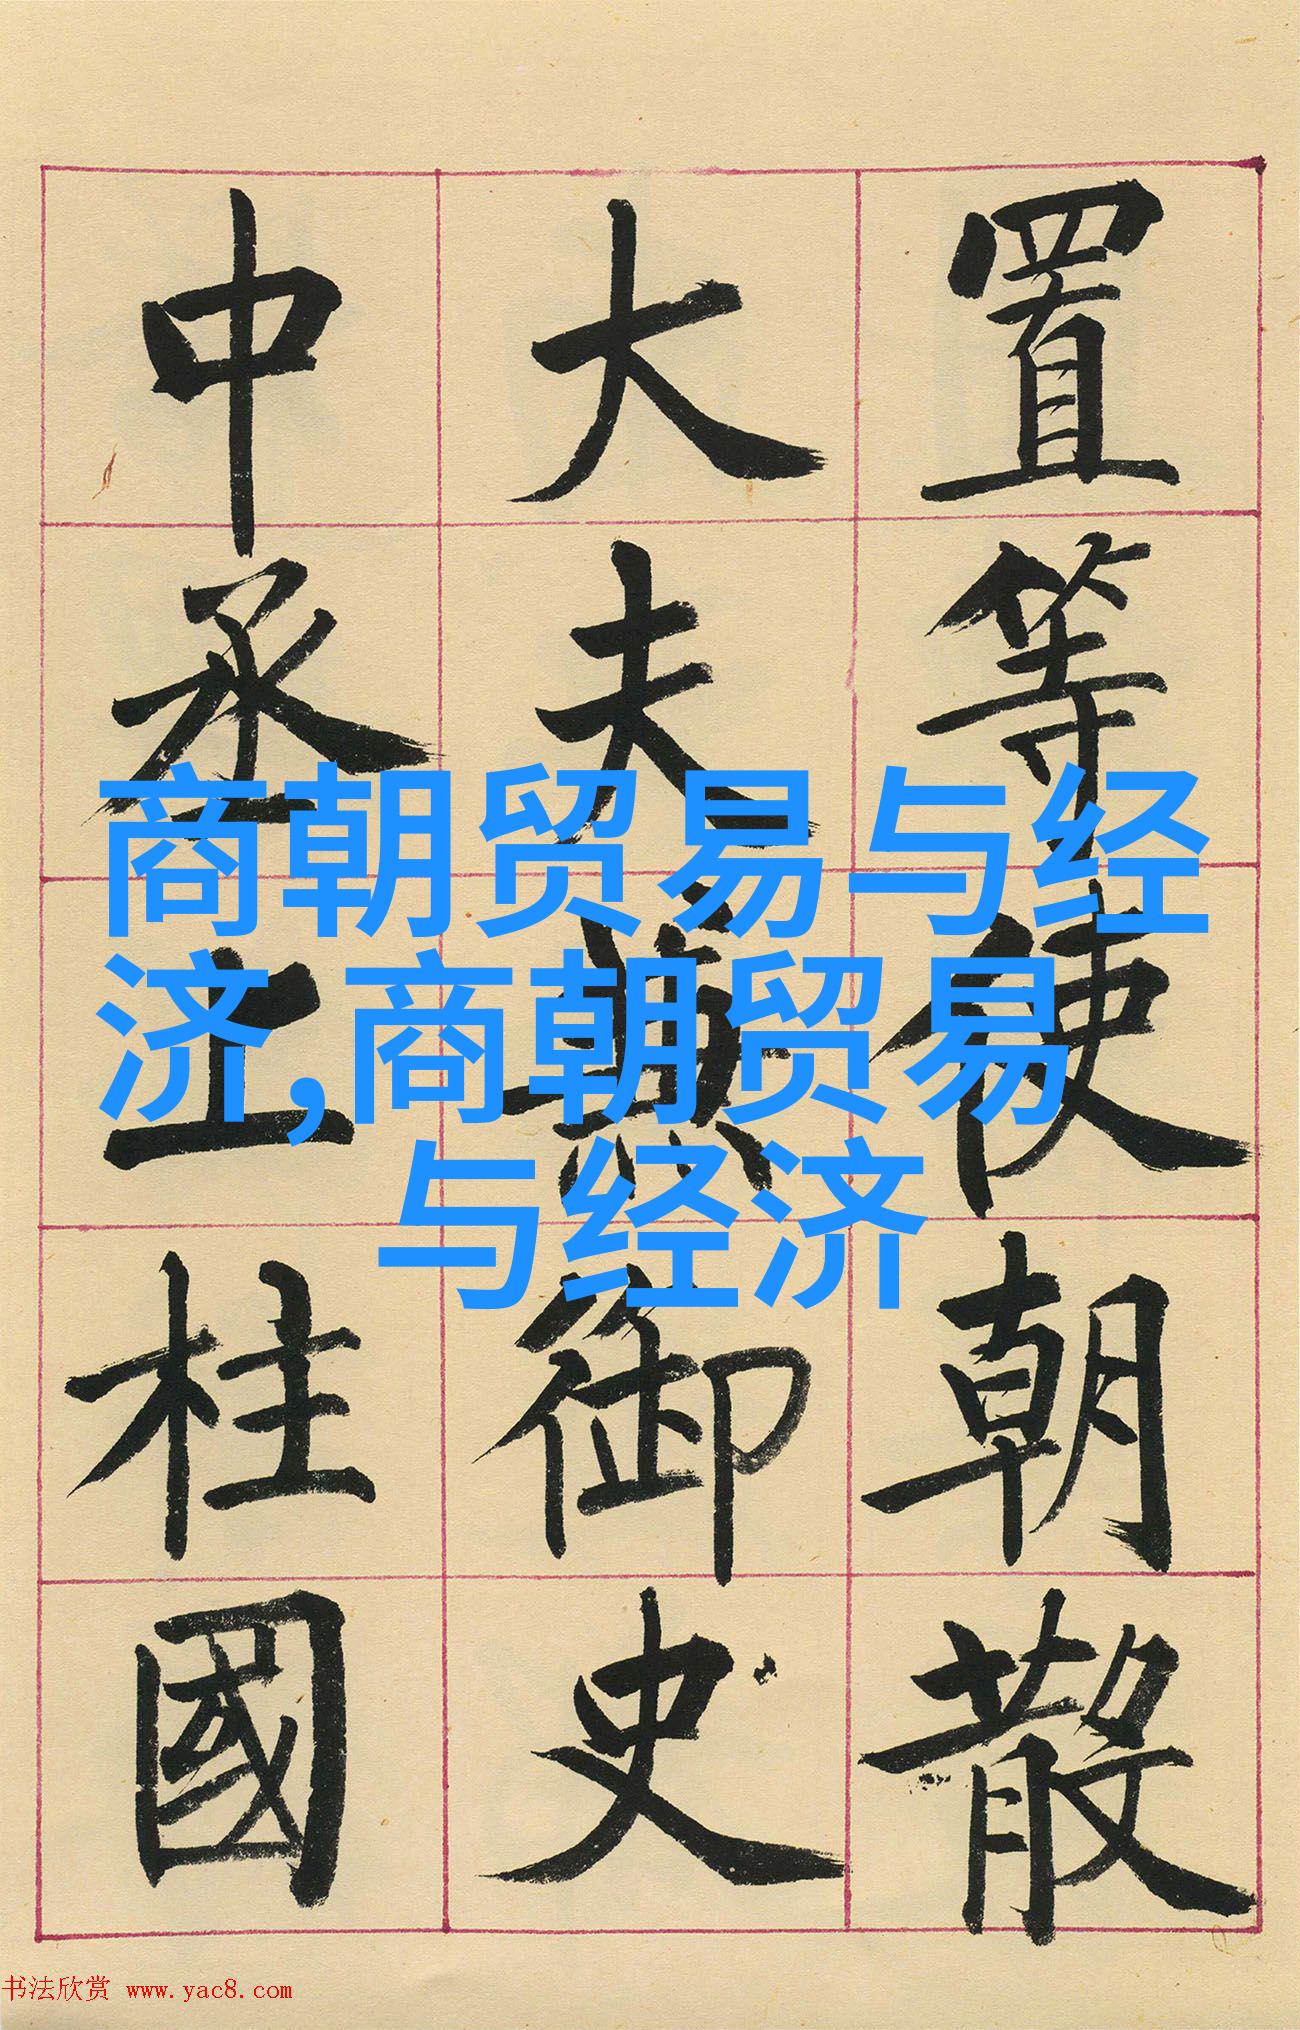 置等使朝散
大夫兼御史
中丞上柱國
商朝贸易与经
济,商朝贸易
与经济
书法欣赏 www.yac8.com